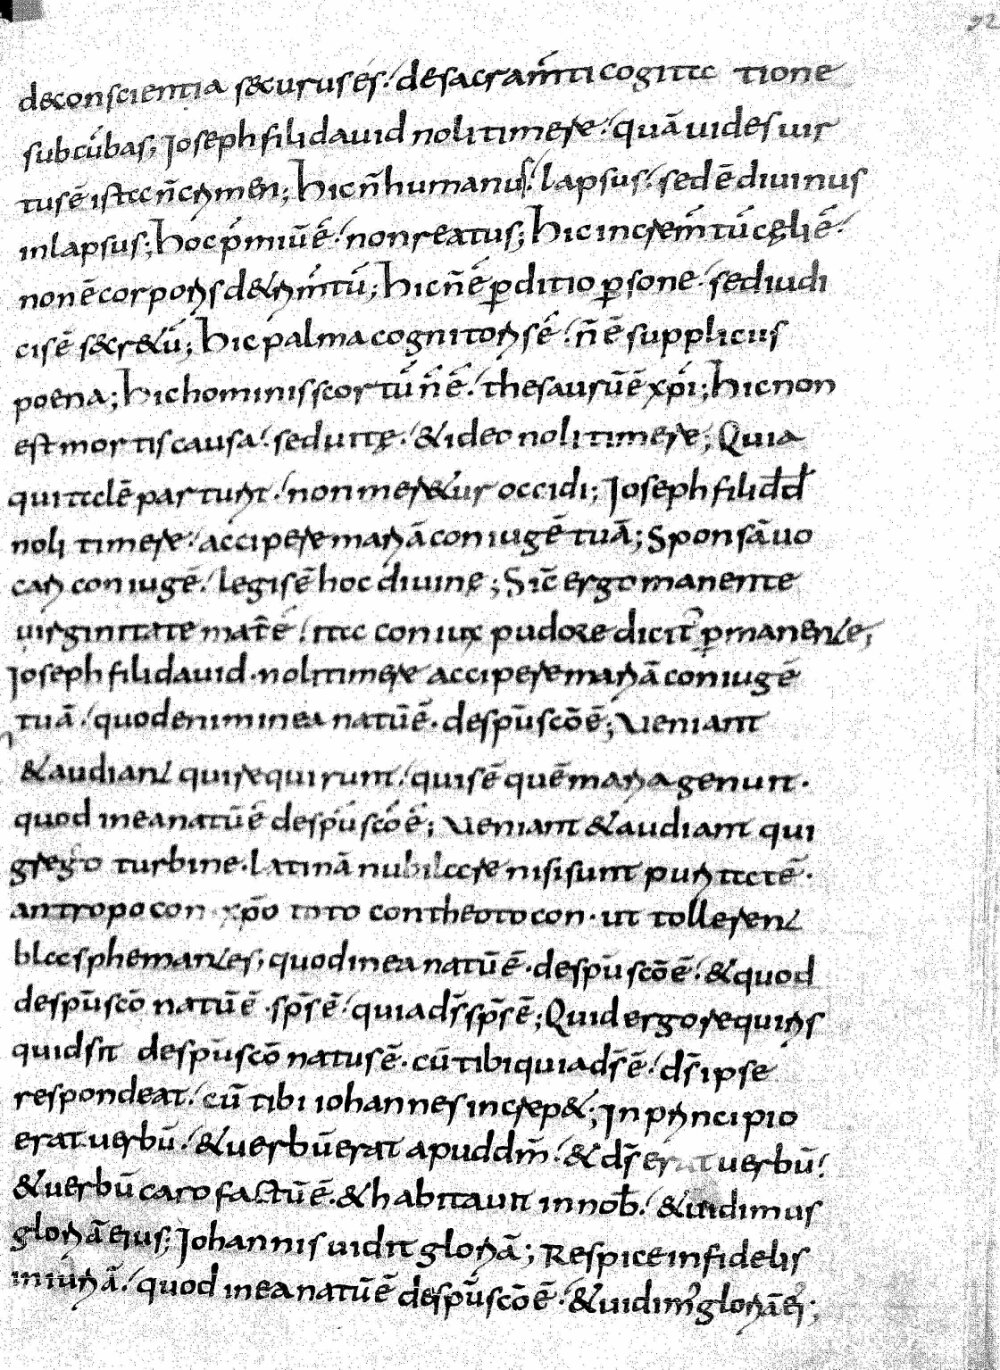 92
deconscientia securus es; desacram̄ti cogita tione
subcūbas; Joseph fili dauid noli timere; quā uides uir
tus ē ista n̄ crimen; hic n̄ humanus lapsus; sed ē diuinus
inlapsus; hoc p̄miū ē; non reatus; hic increm̄tū cęli ē;
non ē corporis detrim̄tū; hic n̄ ē p̱ditio p̱sone; sed iudi
cis ē secretū; hic palma cognitoris ē; n̄ ē supplicii
poena; hic hominis scortū n̄ ē; thesaurū ē xp̄i; hic non
est mortis causa; sed uitę; & ideo noli timere; Quia
qui talē parturit; non meretur occidi; Joseph fili dd̄
noli timere; accipere mariā coniugē tuā; Sponsā uo
cari coniugē; legis ē hoc diuinę; Sic̄ ergo manente
uirginitate mat̄ ē; ita coniux pudore dicit̄ p̱manente;
Joseph fili dauid · noli timere accipere mariā coniugē
tuā; quod enim in ea natū ē · de sp̄u scō ē; Veniant
& audiant qui requirunt; quis ē quē maria genuit ·
quod in ea natū ē de sp̄u scō ē; Veniant & audiant qui
grego turbine · latinā nubilare nisi sunt puritatē ·
antropocon · xp̄o toto con theotocon · ut tollerent
blasphemantes; quod in ea natū ē · de sp̄u scō ē; & quod
de sp̄u scō natū ē · sp̄s ē; quia d̄s sp̄s ē; Quid ergo requiris
quid sit de sp̄u scō natus ē · cū tibi quia d̄s ē; d̄s ipse
respondeat; cū tibi iohannes increp&; Jn principio
erat uerbū; & uerbū erat apud dm̄; & d̄s erat uerbū;
& uerbū caro factū ē · & habitauit in nob̄; & uidimus
gloriā eius; Johannis uidit gloriā; Respice infidelis
iniuriā; quod in ea natū ē de sp̄u scō ē; & uidim' gloriā ei';